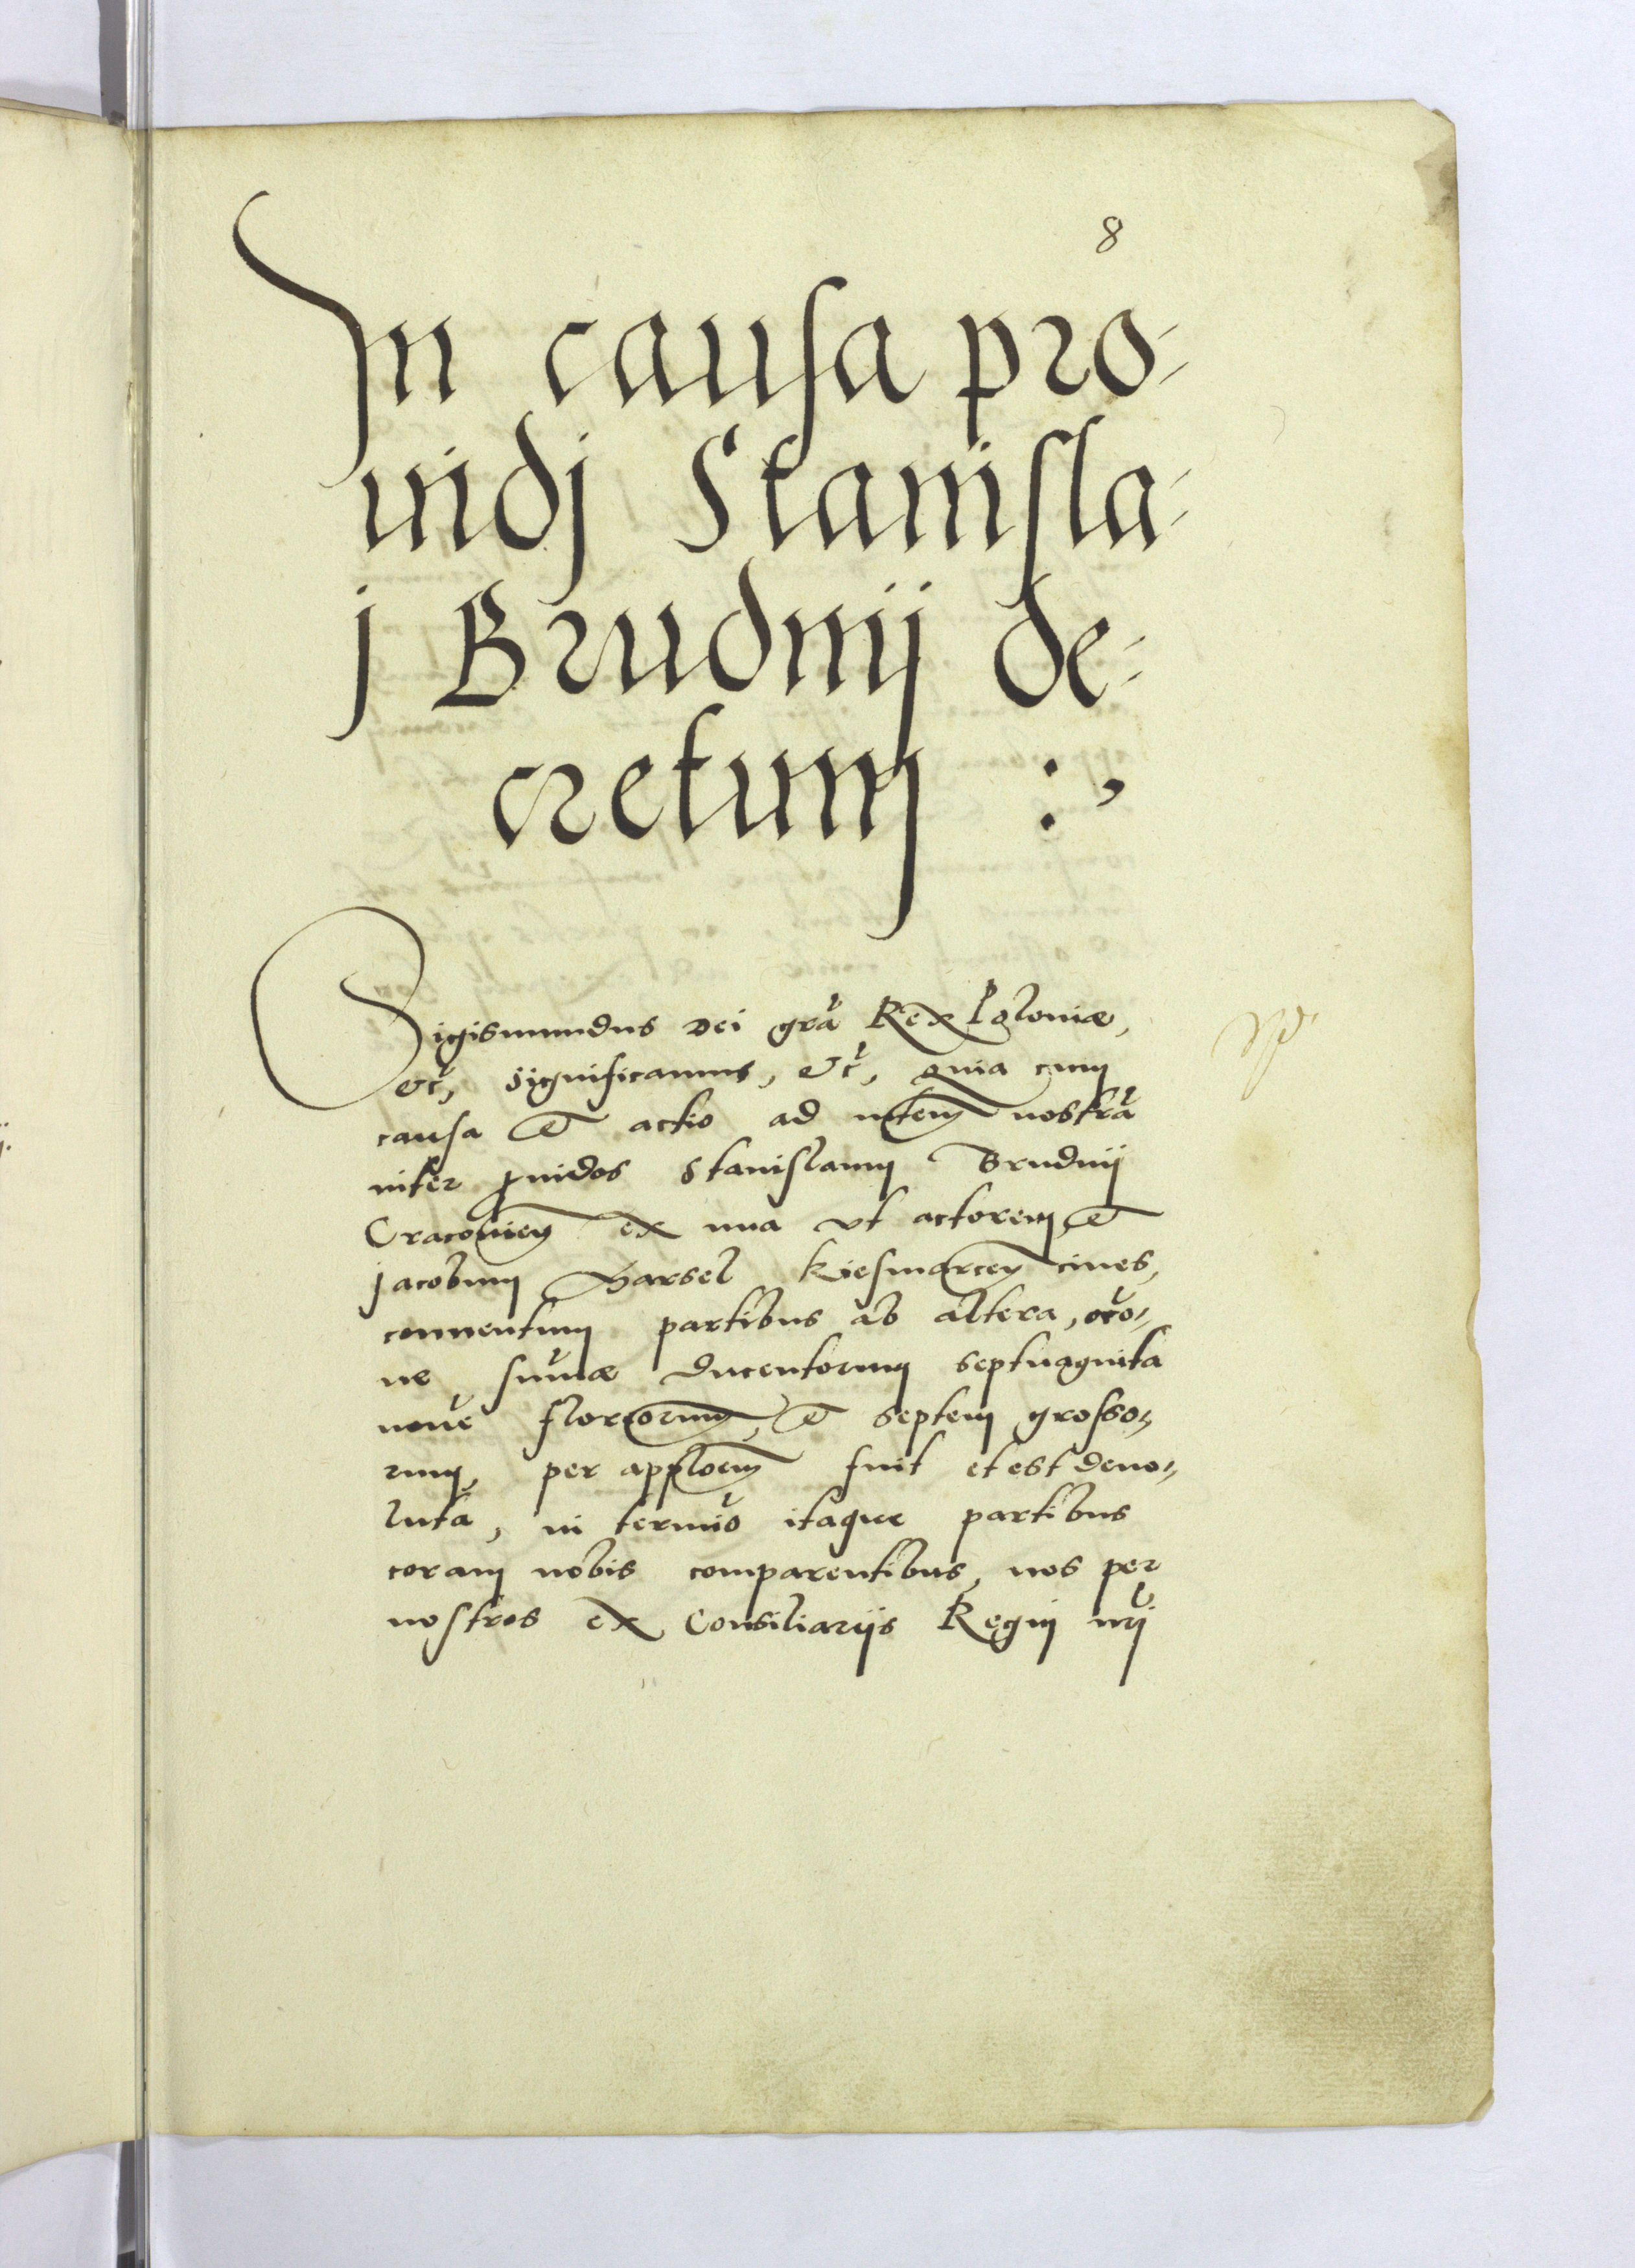 8
In causa pro-
uidj Stanisla-
j Brudnij de-
cretum :,
Sigismundus Dei gra Rex Poloniæ,
etc, significamus, etc, quia cum
causa et actio ad mtem nostra
inter puidos Stanislaum Brudnij
Cracouien ex una vt actorem, et
Jacobum Harsel Kiesmarcen ciues,
conuentum partibus ab altera, oco-
ne sumæ ducentorum septuaginta
noue florenorum, et septem grosso-
rum, per applloem fuit et est deuo-
luta, in termio itaque partibus
coram nobis comparentibus, nos per
nostros ex Consiliarijs Regnj nrj